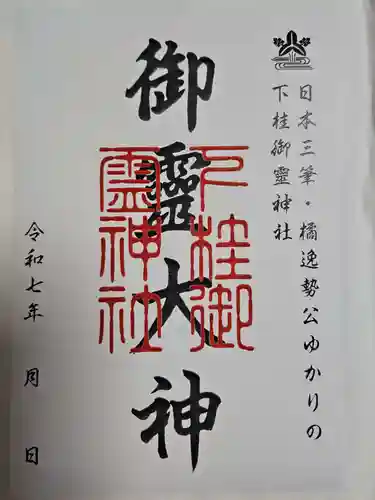 日本三筆・橘逸勢公ゆかりの
下桂御靈神社
御靈大神
下桂御
霊神社
令和七年　月　日